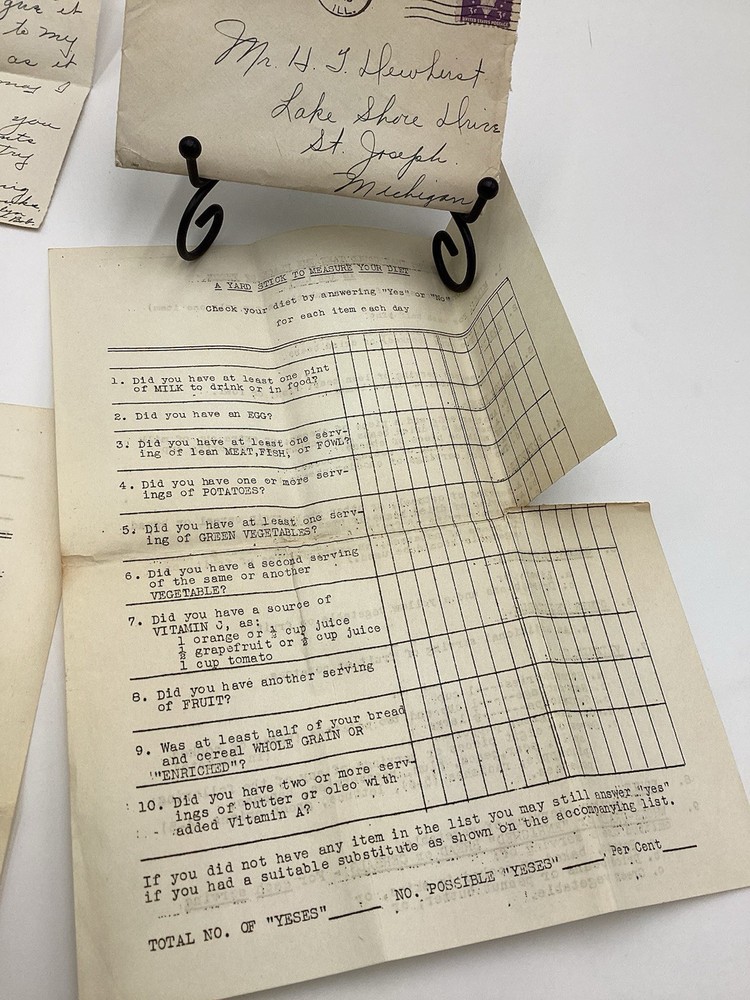 give it
to my
as it
I
you
try
ILL.
UNITED STATES POSTAGE
Mr. H. T. Dewhirst
Lake Shore Drive
St. Joseph.
Michigan
A YARD STICK TO MEASURE YOUR DIET
Check your diet by answering "Yes" or "No"
for each item each day
1. Did you have at least one pint
of MILK to drink or in food?
2. Did you have an EGG?
3. Did you have at least one serv-
ing of lean MEAT,FISH, or FOWL?
4. Did you have one or more serv-
ings of POTATOES?
5. Did you have at least one serv-
ing of GREEN VEGETABLES?
6. Did you have a second serving
of the same or another
VEGETABLE?
7. Did you have a source of
VITAMIN C, as:
1 orange or ½ cup juice
½ grapefruit or ½ cup juice
1 cup tomato
8. Did you have another serving
of FRUIT?
9. Was at least half of your bread
and cereal WHOLE GRAIN OR
"ENRICHED"?
10. Did you have two or more serv-
ings of butter or oleo with
added Vitamin A?
If you did not have any item in the list you may still answer "yes"
if you had a suitable substitute as shown on the accompanying list.
TOTAL NO. OF "YESES" NO. POSSIBLE "YESES" Per Cent